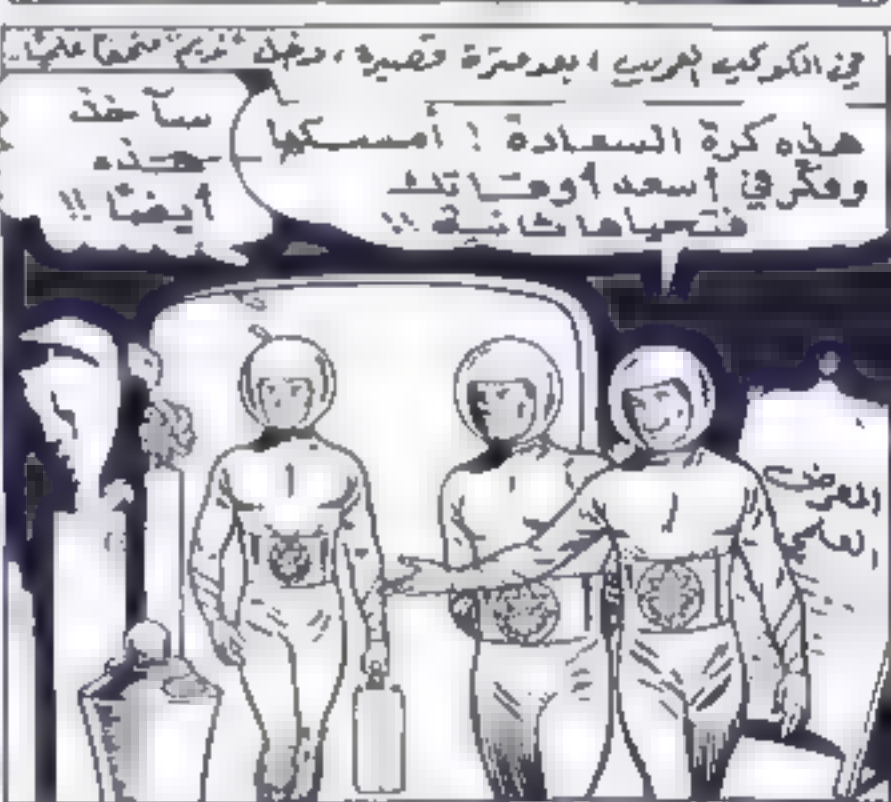 في الكوكب الغريب ، بعد فترة قصيرة ، دخل "نديم" متحفا علميا..
هذه كرة السعادة ! أمسكها
وفكر في أسعد أوقاتك
فتحياها ثانية !!
سآخذ
هذه
أيضا !!
المعرض
العلمي